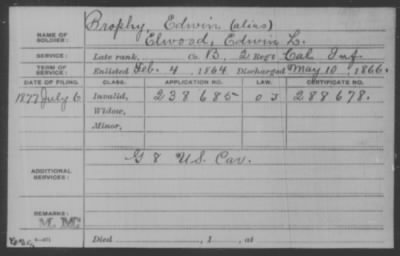 NAME OF SOLDIER: Brophy, Edwin (alias)
Elwood, Edwin L.
SERVICE: Late rank, Co. B, 2 Reg't Cal Inf
TERM OF SERVICE: Enlisted Feb. 4, 1864 Discharged May 10, 1866.
DATE OF FILING. CLASS. APPLICATION NO. LAW. CERTIFICATE NO.
1877 July 6 Invalid, 238685 288678.
Widow,
Minor,
ADDITIONAL SERVICES: G 8 U.S. Cav.
REMARKS:
Died , 1 , at